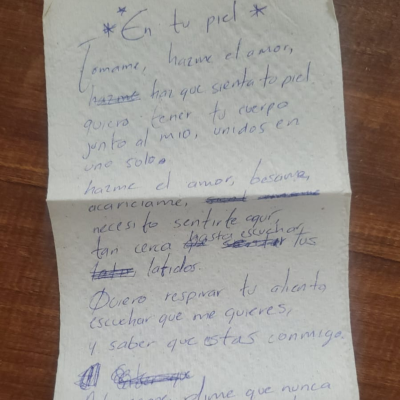 * En tu piel *
Tomame, hazme el amor,
hazme haz que sienta tu piel
quiero tener tu cuerpo
junto al mio, unidos en
uno solo.
hazme el amor, besame,
acariciame,
necesito sentirte aqui,
tan cerca hasta escuchar tus
latidos.
Quiero respirar tu aliento
escuchar que me quieres,
y saber que estas conmigo.
dime que nunca